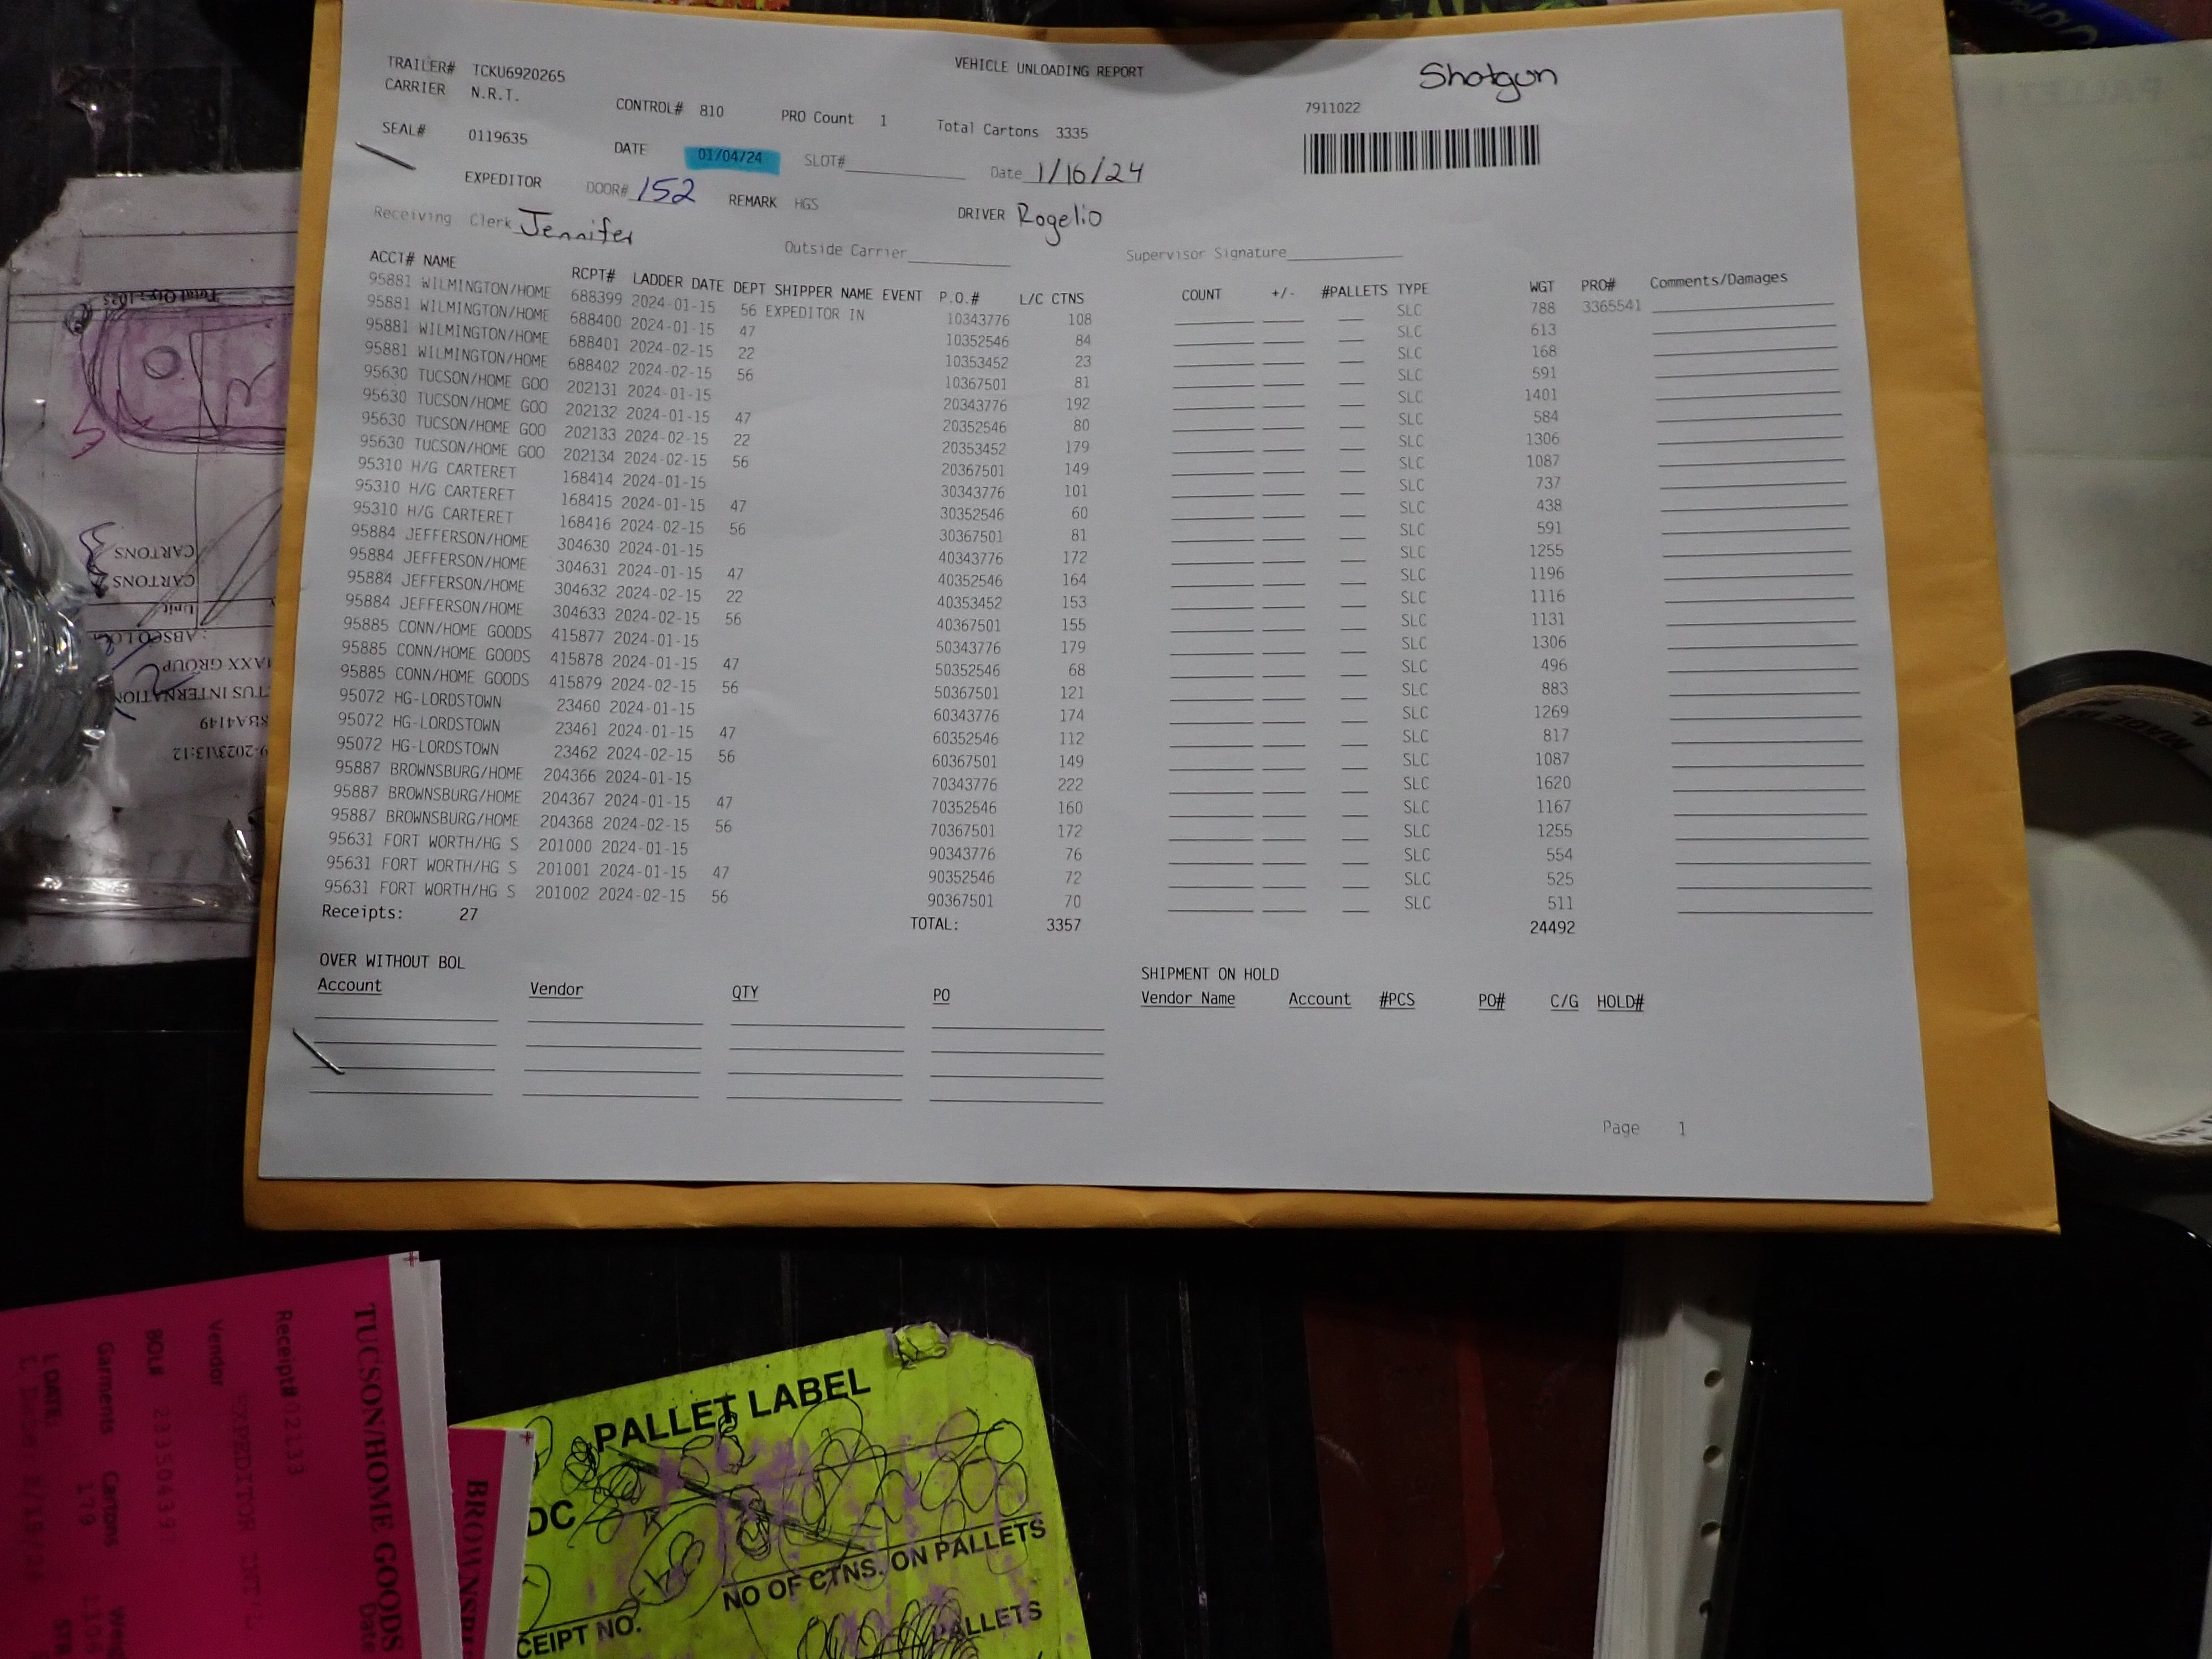 VEHICLE UNLOADING REPORT
Shotgun
TRAILER# TCKU6920265
CARRIER N.R.T.
CONTROL# 810 PRO Count 1 Total Cartons 3335
7911022
SEAL# 0119635 DATE 01/04/24 SLOT# Date 1/16/24
EXPEDITOR DOOR# 152 REMARK HGS DRIVER Rogelio
Receiving Clerk Jennifer Outside Carrier Supervisor Signature
ACCT# NAME RCPT# LADDER DATE DEPT SHIPPER NAME EVENT P.O.# L/C CTNS COUNT +/- #PALLETS TYPE WGT PRO# Comments/Damages
95881 WILMINGTON/HOME 688399 2024-01-15 56 EXPEDITOR IN 10343776 108 SLC 788 3365541
95881 WILMINGTON/HOME 688400 2024-01-15 47 10352546 84 SLC 613
95881 WILMINGTON/HOME 688401 2024-02-15 22 10353452 23 SLC 168
95881 WILMINGTON/HOME 688402 2024-02-15 56 10367501 81 SLC 591
95630 TUCSON/HOME GOO 202131 2024-01-15 20343776 192 SLC 1401
95630 TUCSON/HOME GOO 202132 2024-01-15 47 20352546 80 SLC 584
95630 TUCSON/HOME GOO 202133 2024-02-15 22 20353452 179 SLC 1306
95630 TUCSON/HOME GOO 202134 2024-02-15 56 20367501 149 SLC 1087
95310 H/G CARTERET 168414 2024-01-15 30343776 101 SLC 737
95310 H/G CARTERET 168415 2024-01-15 47 30352546 60 SLC 438
95310 H/G CARTERET 168416 2024-02-15 56 30367501 81 SLC 591
95884 JEFFERSON/HOME 304630 2024-01-15 40343776 172 SLC 1255
95884 JEFFERSON/HOME 304631 2024-01-15 47 40352546 164 SLC 1196
95884 JEFFERSON/HOME 304632 2024-02-15 22 40353452 153 SLC 1116
95884 JEFFERSON/HOME 304633 2024-02-15 56 40367501 155 SLC 1131
95885 CONN/HOME GOODS 415877 2024-01-15 50343776 179 SLC 1306
95885 CONN/HOME GOODS 415878 2024-01-15 47 50352546 68 SLC 496
95885 CONN/HOME GOODS 415879 2024-02-15 56 50367501 121 SLC 883
95072 HG-LORDSTOWN 23460 2024-01-15 60343776 174 SLC 1269
95072 HG-LORDSTOWN 23461 2024-01-15 47 60352546 112 SLC 817
95072 HG-LORDSTOWN 23462 2024-02-15 56 60367501 149 SLC 1087
95887 BROWNSBURG/HOME 204366 2024-01-15 70343776 222 SLC 1620
95887 BROWNSBURG/HOME 204367 2024-01-15 47 70352546 160 SLC 1167
95887 BROWNSBURG/HOME 204368 2024-02-15 56 70367501 172 SLC 1255
95631 FORT WORTH/HG S 201000 2024-01-15 90343776 76 SLC 554
95631 FORT WORTH/HG S 201001 2024-01-15 47 90352546 72 SLC 525
95631 FORT WORTH/HG S 201002 2024-02-15 56 90367501 70 SLC 511
Receipts: 27 TOTAL: 3357 24492
OVER WITHOUT BOL
Account Vendor QTY PO
SHIPMENT ON HOLD
Vendor Name Account #PCS PO# C/G HOLD#
Page 1
Total Qty: 1025
CARTONS
CARTONS
Unit
MAXX GROUP
TUCSON/HOME GOODS
Date
Receipt# 02133
Vendor EXPEDITOR INT'L
BOL#
Garments Cartons
179
PALLET LABEL
DC
NO OF CTNS. ON PALLETS
CEIPT NO.
PALLETS